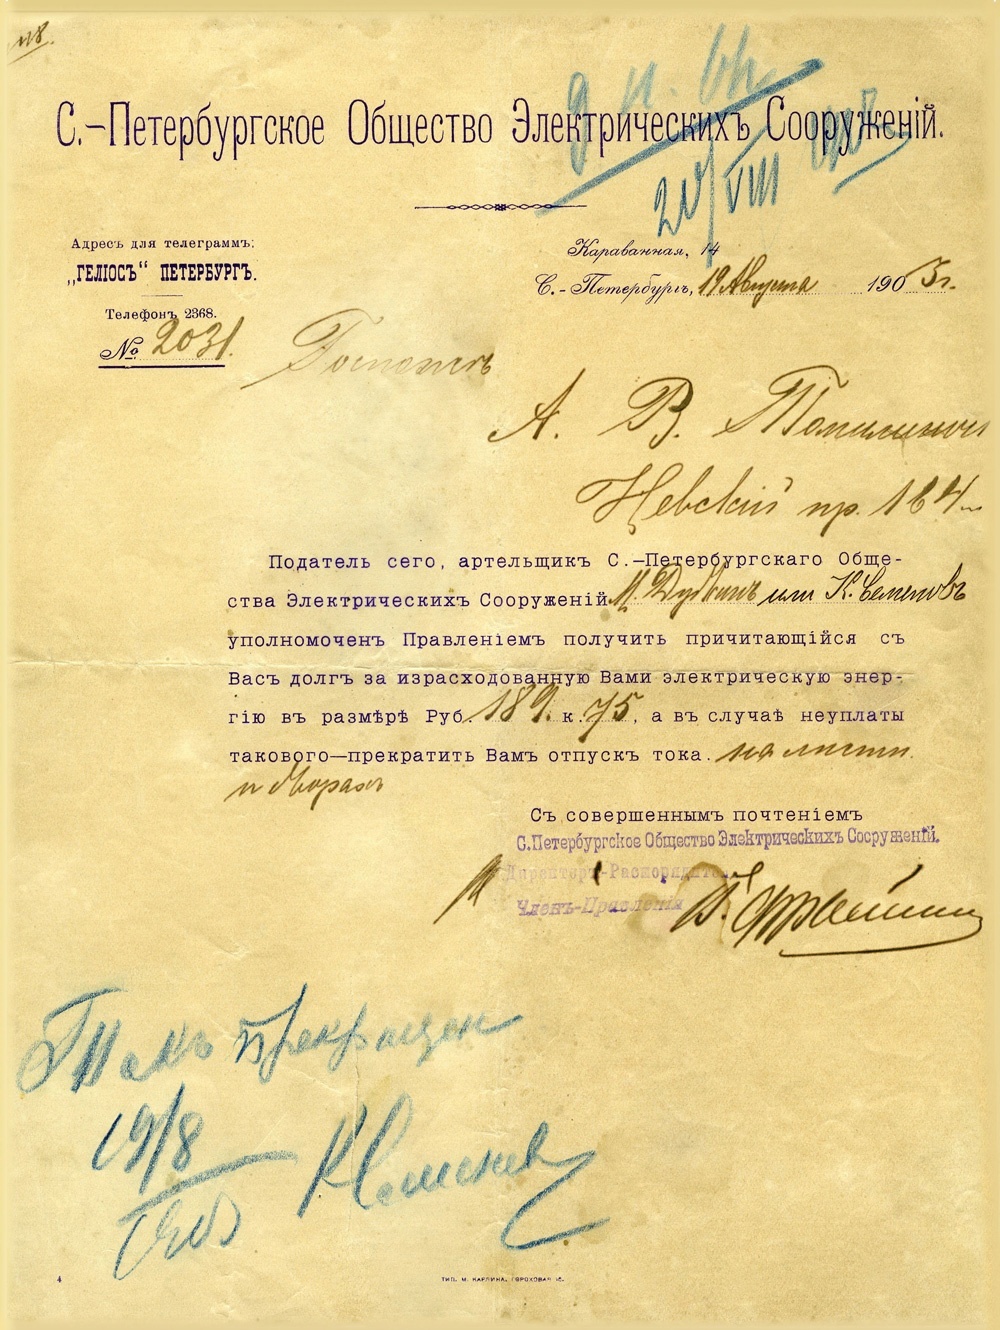 С.-Петербургское Общество Электрическихъ Сооруженій.
20/VIII
Адресъ для телеграммъ:
„ГЕЛІОСЪ“ ПЕТЕРБУРГЪ.
Телефонъ 2368.
№ 2031.
Караванная, 14
С.-Петербургъ, 19 Августа 1903 г.
Госпожѣ
А. В.
Невскій пр.
Податель сего, артельщикъ С.-Петербургскаго Обще-
ства Электрическихъ Сооруженій или К. Семеновъ
уполномоченъ Правленіемъ получить причитающійся съ
Васъ долгъ за израсходованную Вами электрическую энер-
гію въ размѣрѣ Руб. 189. к. 75, а въ случаѣ неуплаты
такового—прекратить Вамъ отпускъ тока.
Съ совершеннымъ почтеніемъ
С.Петербургское Общество Электрическихъ Сооруженій.
Директоръ-Распорядитель
Членъ-Правленія
Токъ прекращен
19/8
К Семенов
4
ТИП. М. КАРЛИНА, ГОРОХОВАЯ